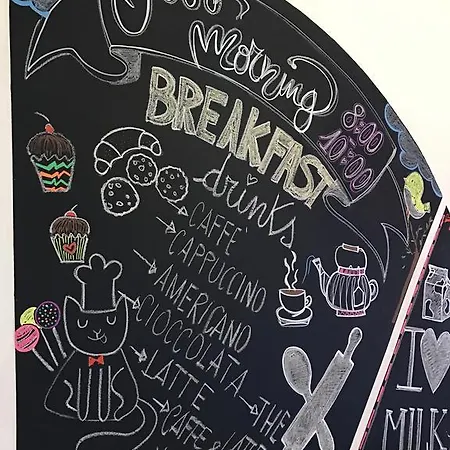 Good
morning
BREAKFAST
8:00
10:00
drinks
CAFFÈ
CAPPUCCINO
AMERICANO
CIOCCOLATA
LATTE
THE
CAFFE & LATTE
I
MILK